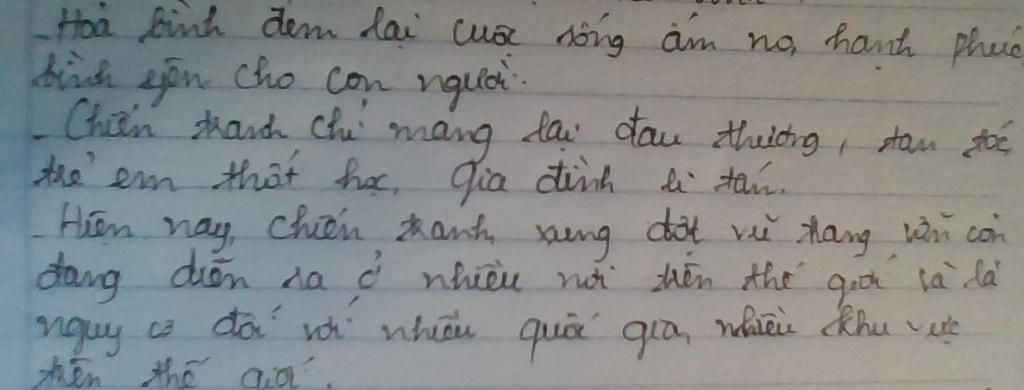 - Hoà bình đem lại cuộc sống ấm no, hạnh phúc
bình yên cho con người.
- Chiến tranh chỉ mang lại đau thương, tan tóc
trẻ em thất học, gia đình li tán.
- Hiện nay, chiến tranh, xung đột vũ trang vẫn còn
đang diễn ra ở nhiều nơi trên thế giới và là
nguy cơ đối với nhiều quốc gia, nhiều khu vực
trên thế giới.